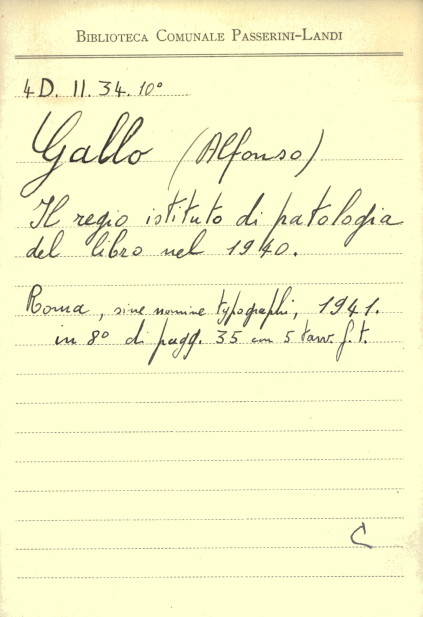 Biblioteca Comunale Passerini-Landi
4D. II. 34. 10°
Gallo (Alfonso)
Il regio istituto di patologia
del libro nel 1940.
Roma, sine nomine typographi, 1941.
in 8° di pagg. 35 con 5 tavv. f. t.
C